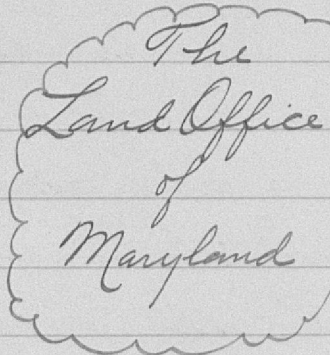 The
Land Office
of
Maryland